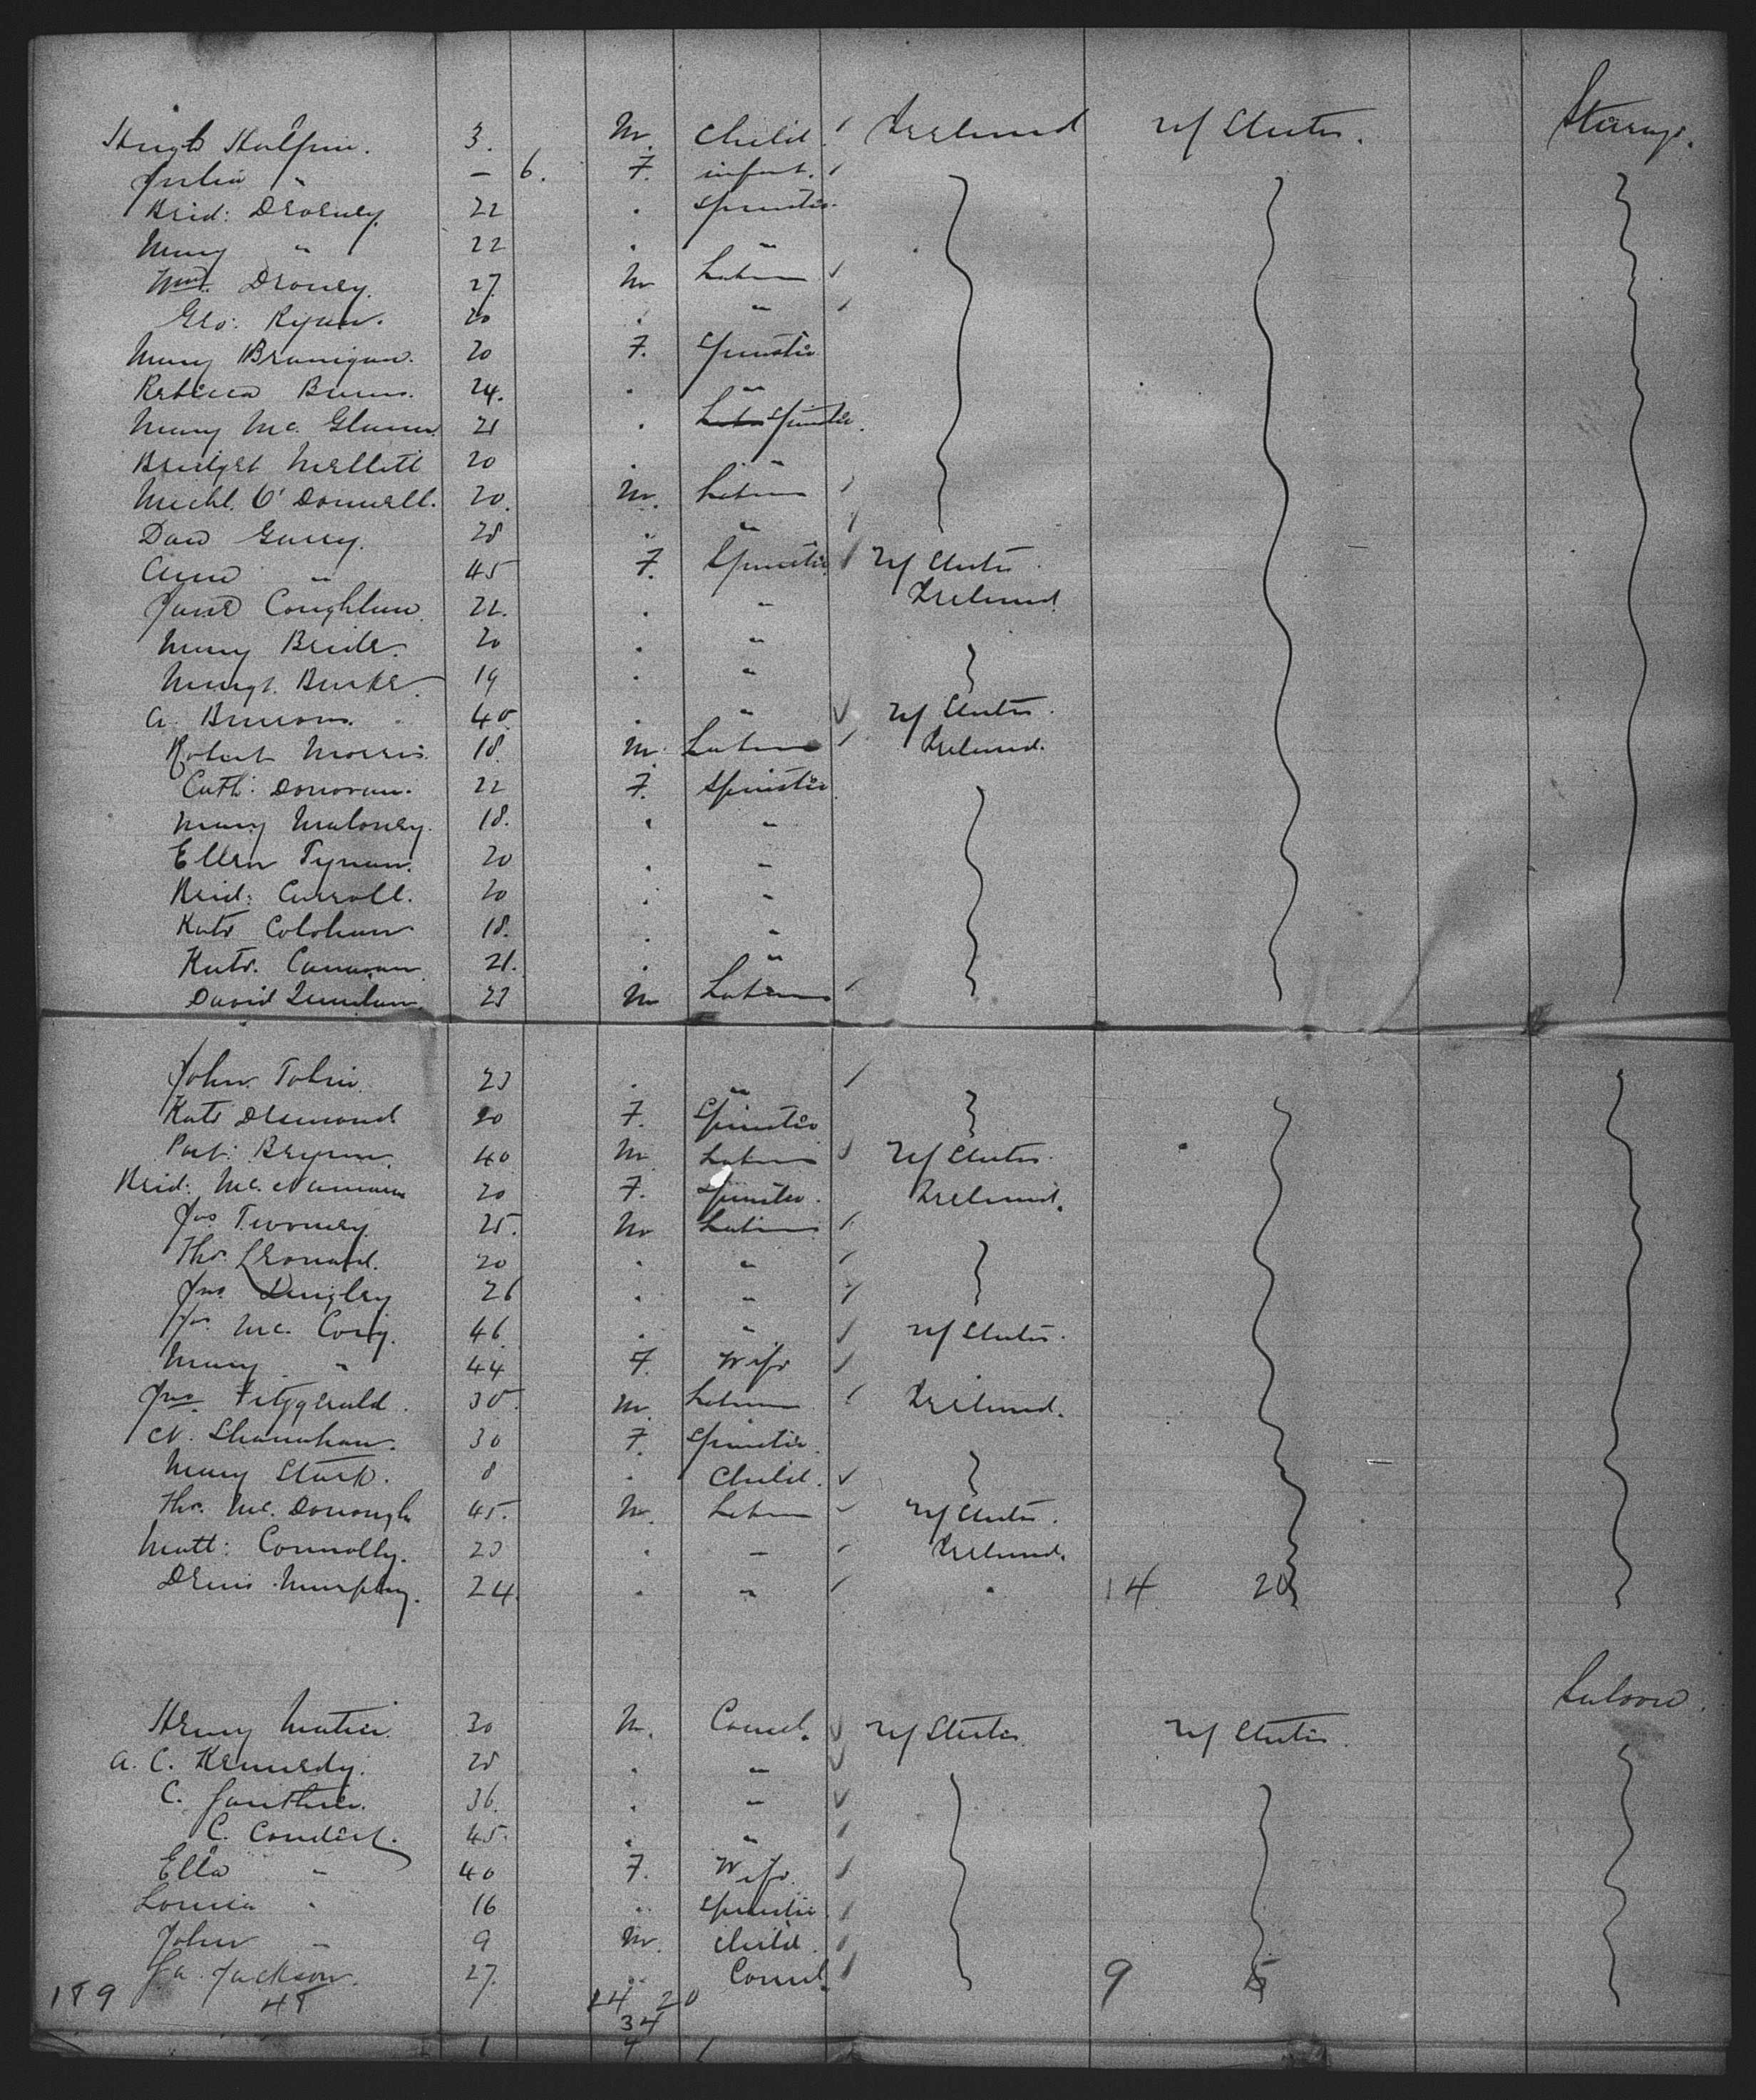 Hugh Halpin. 3. M. Child. Ireland U/States. Steerage.
Julia " — 6. F. infant.
Brid: Droney. 22 . Spinster.
Mary " 22 . "
Wm. Droney. 27. M Labourer
Geo: Ryan. 20 . "
Mary Branigan. 20 F. Spinster
Rebecca Burns. 24. . "
Mary Mc. Glann. 21 . Spinster.
Bridget Mellett 20 . "
Michl. O'Donnell. 20. M. Labourer
Dan Garry. 28 " "
Anne " 45 F. Spinster U/States.
Jane Coughlan. 22. . " Ireland.
Mary Bride. 20 . "
Margt. Burke. 19 . "
A. 40. . " U/States.
Robert Morris. 18. M. Labourer Ireland.
Cath: Donovan. 22 F. Spinster.
Mary Maloney. 18. . "
Ellen Tynan. 20 . "
Brid: Carroll. 20 . "
Kate Colohan 18. . "
Kate. 21. . "
David Quinlan. 23 M Labourer
John Tobin. 23 . "
Kate Desmond 20 F. Spinster
Pat: 40 M. Labourer U/States.
Brid: Mc. Namara 20 F. Spinster. Ireland.
Jas Twomey. 25. M Labourer
Thos. Leonard. 20 . "
Jno. Dingley 26 . "
Mc. 46. . " U/States.
Mary " 44 F. Wife
Jno. Fitzgerald. 30. M. Labourer Ireland.
N. Shanahan. 30 F. Spinster.
Mary Stack. 8 . Child.
Thos. Mc. Donough 45. M. Labourer U/States.
Matt: Connolly. 23 . " Ireland.
Denis Murphy. 24. . " . 14 20
Saloon.
Henry 30 M. Coml. U/States. U/States.
A. C. Kennedy. 28 . "
C. Gauthier. 36. . "
C. 45. . "
Ella " 40 F. Wife.
Louisa " 16 " Spinster
John " 9 M. Child.
Jackson. 27. " Coml. 9 5
189 48 14 20
34